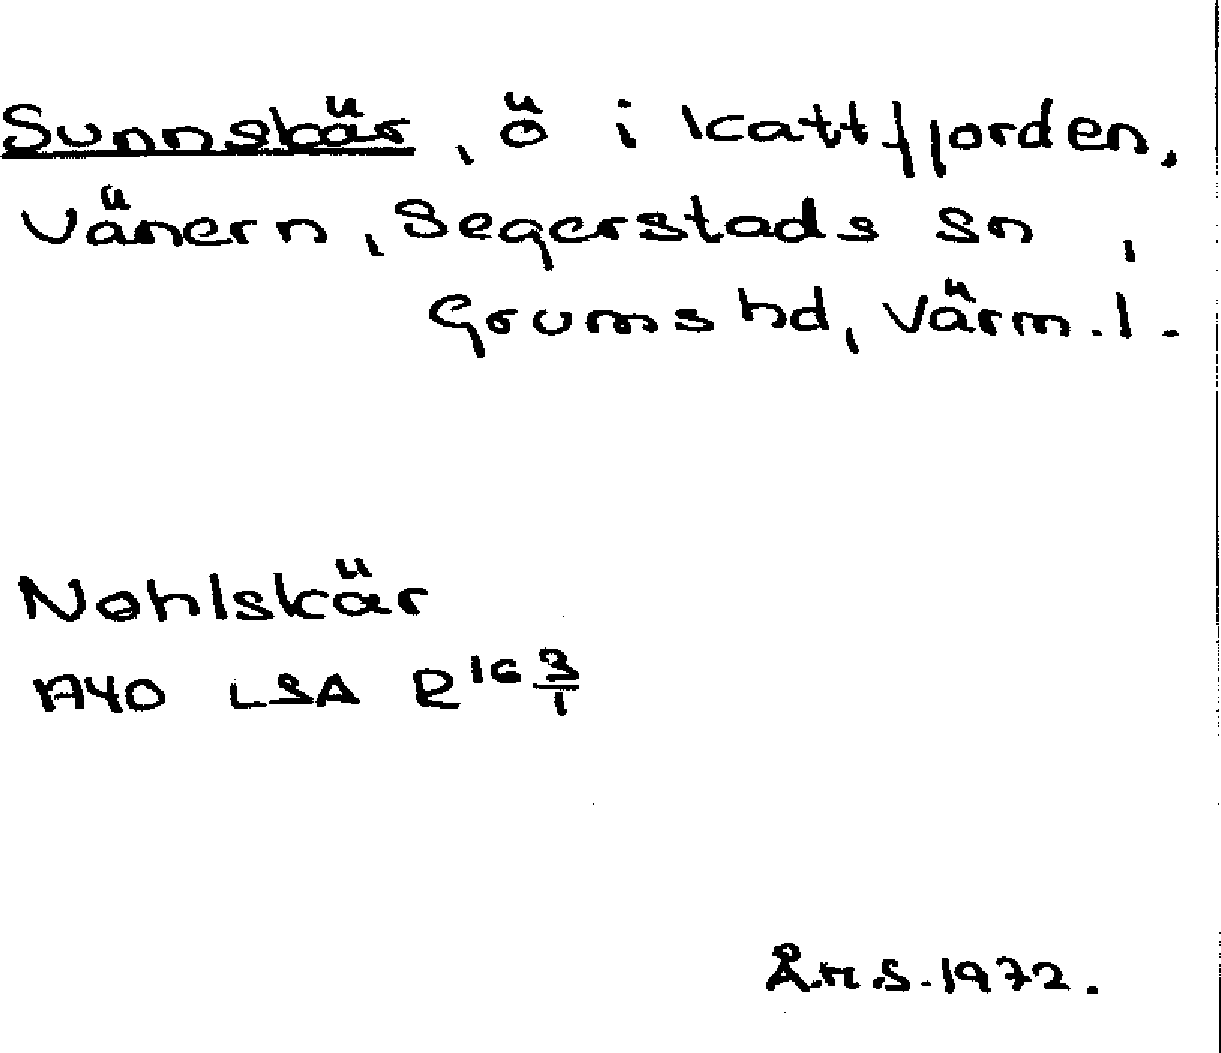 Sunnskär, ö i Kattfjorden,
Vänern, Segerstads sn,
Grums hd, Värm. l.
Nohlskär
1740 LSA R¹⁶ 3/1
Å.H.S. 1972.